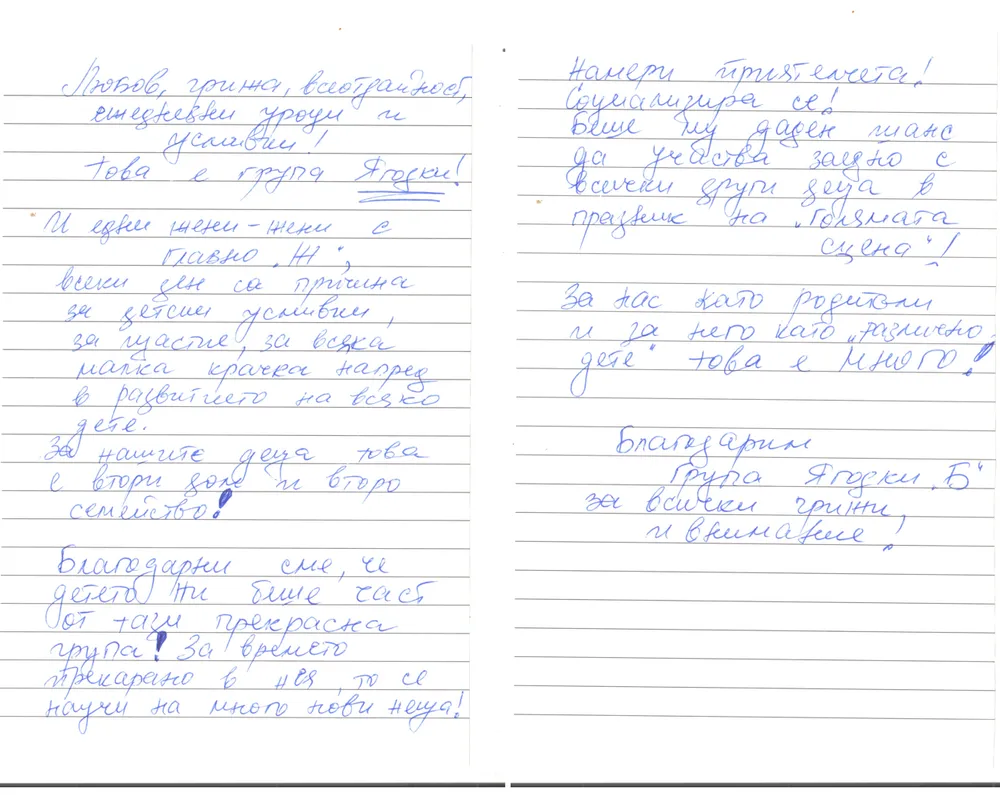 Любов, грижа, всеотдайност,
ежедневни уроци и
усмивки!
Това е група Ягодки!
И едни жени-жени с
главно „Ж“,
всеки ден са причина
за детски усмивки,
за щастие, за всяка
малка крачка напред
в развитието на всяко
дете.
За нашите деца това
е втори дом и второ
семейство!
Благодарни сме, че
детето ни беше част
от тази прекрасна
група! За времето
прекарано в нея, то се
научи на много нови неща!
Намери приятелчета!
Социализира се!
Беше му даден шанс
да участва заедно с
всички други деца в
празник на „Голямата
сцена“!
За нас като родители
и за него като „различно
дете“ това е МНОГО!
Благодарим
Група Ягодки „Б“
за всички грижи,
и внимание!